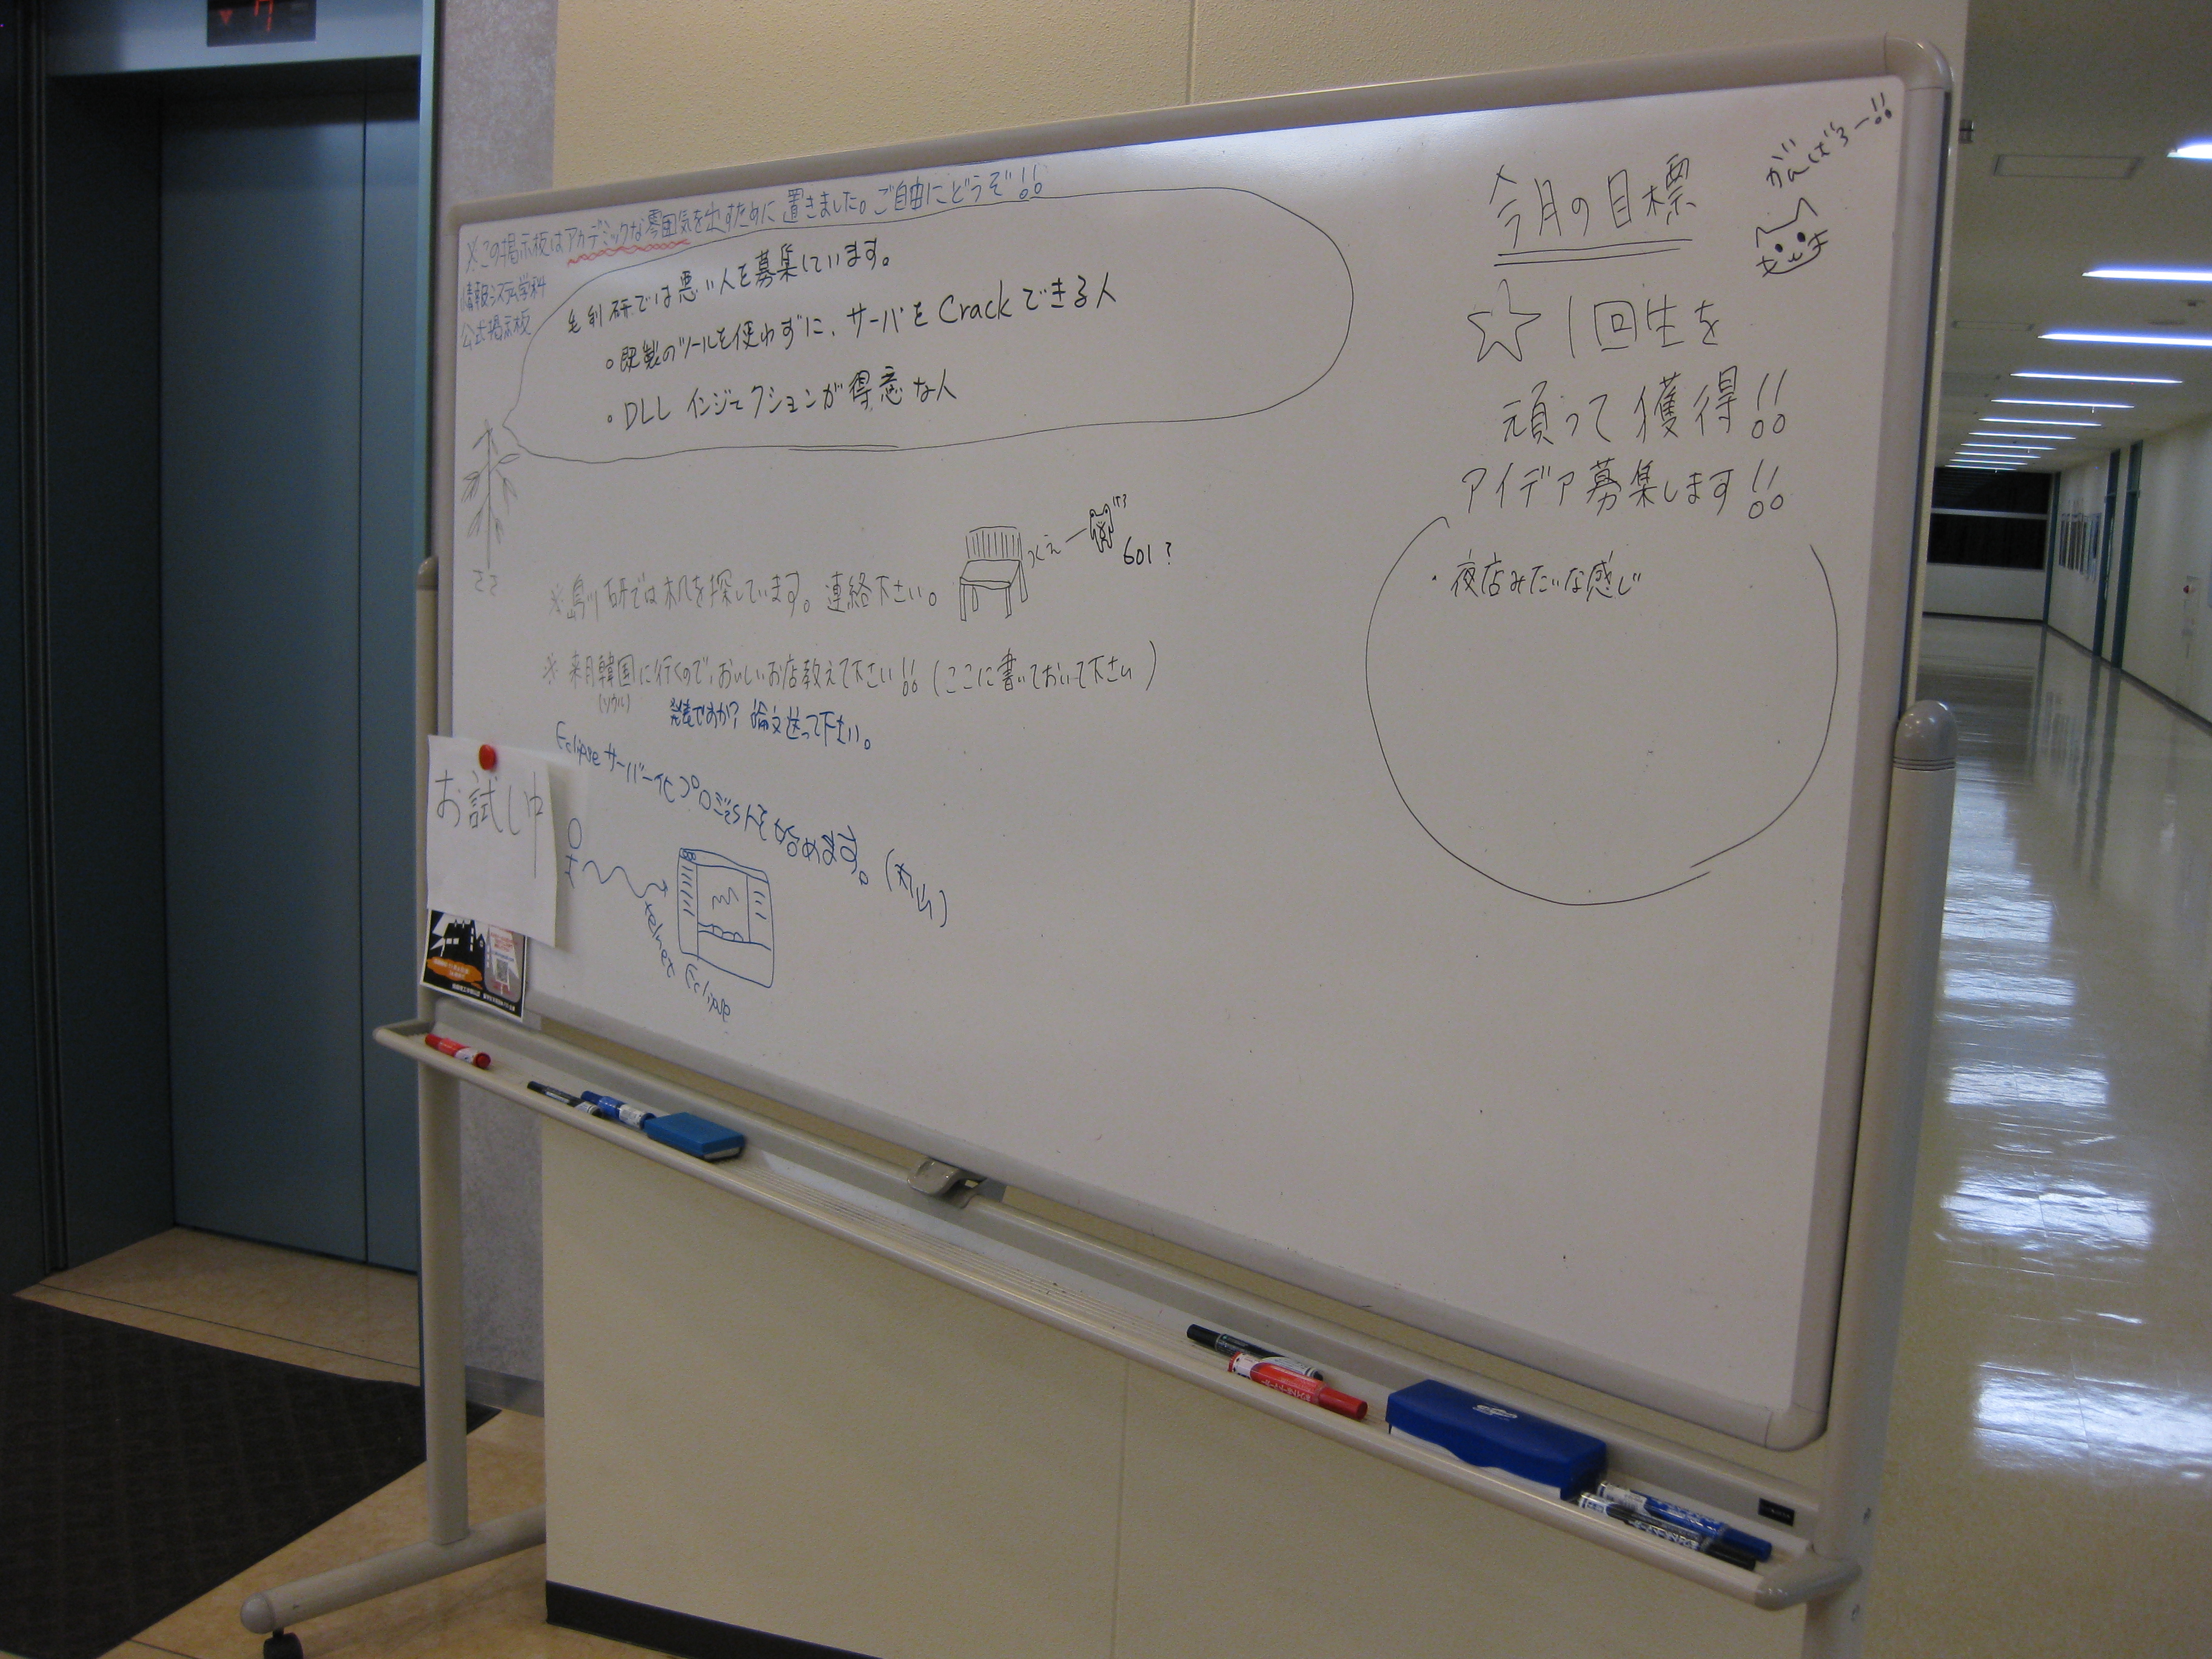 ※この掲示板はアカデミックな雰囲気を出すために置きました。ご自由にどうぞ!!
情報システム学科
公式掲示板
毛利研では悪い人を募集しています。
○既製のツールを使わずに、サーバをCrackできる人
○DLLインジェクションが得意な人
ささ
※島川研では机を探しています。連絡下さい。
つくえー
601?
※来月韓国に行くので、おいしいお店教えて下さい!!(ここに書いておいて下さい)
(ソウル)
発表ですか?論文送って下さい。
Eclipseサーバー化プロジェクトを始めます。(丸山)
telnet
Eclipse
お試し中
がんばろー!!
今月の目標
☆1回生を
頑って獲得!!
アイデア募集します!!
・夜店みたいな感じ